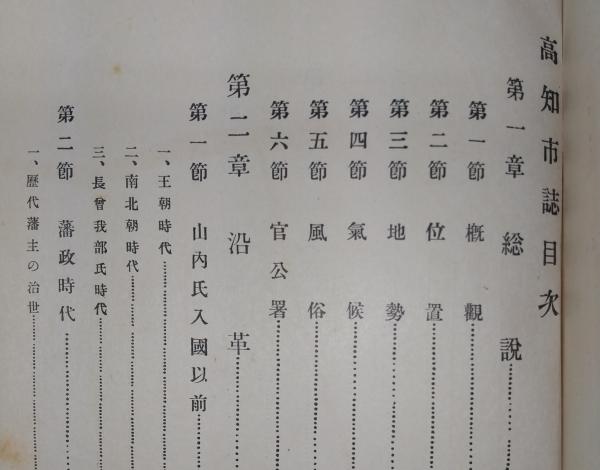 高知市誌目次
第一章 総說
第一節 槪觀
第二節 位置
第三節 地勢
第四節 氣候
第五節 風俗
第六節 官公署
第二章 沿革
第一節 山內氏入國以前
一、王朝時代
二、南北朝時代
三、長曾我部氏時代
第二節 藩政時代
一、歷代藩主の治世